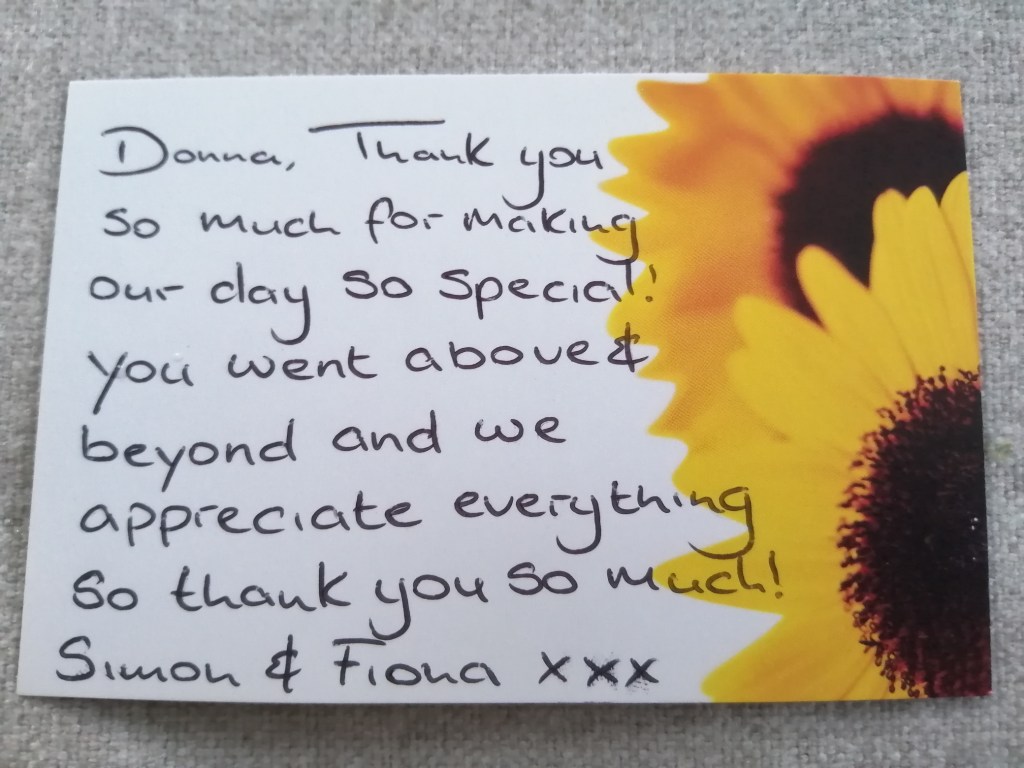 Donna, Thank you
so much for making
our day so special!
you went above &
beyond and we
appreciate everything
so thank you so much!
Simon & Fiona xxx